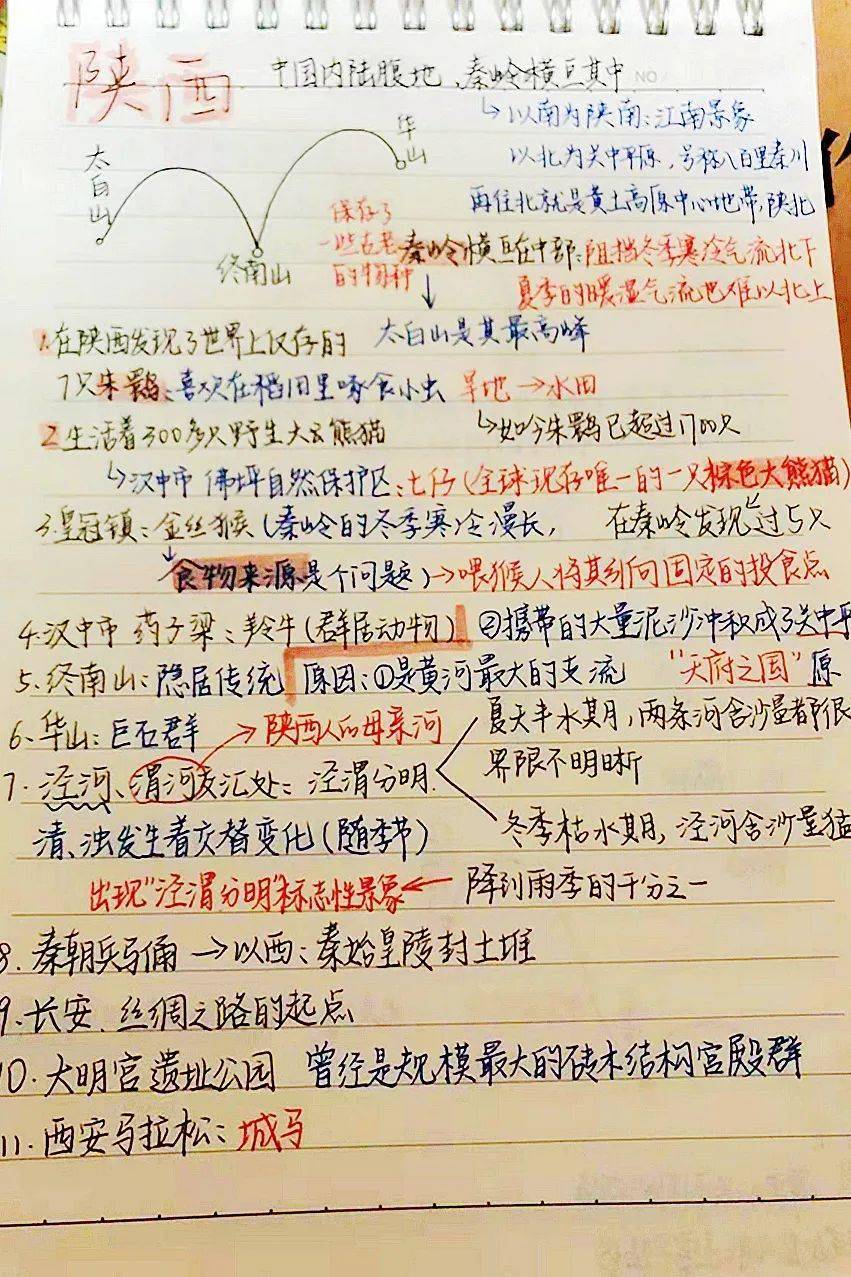 陕西 中国内陆腹地、秦岭横亘其中 NO
↳以南为陕南:江南景象
以北为关中平原,号称八百里秦川
再往北就是黄土高原中心地带,陕北
太白山
终南山
华山
保存了
一些古老
的物种
秦岭横亘在中部:阻挡冬季寒冷气流北下
夏季的暖湿气流也难以北上
↓
太白山是其最高峰
1.在陕西发现了世界上仅存的
7只朱鹮:喜欢在稻田里啄食小虫 旱地→水田
↳如今朱鹮已超过1700只
2.生活着300多只野生大云熊猫
↳汉中市 佛坪自然保护区:七仔(全球现存唯一的一只棕色大熊猫)
在秦岭发现过5只
3.皇冠镇:金丝猴(秦岭的冬季寒冷漫长,
食物来源是个问题)→喂猴人将其引向固定的投食点
4.汉中市 药子梁:羚牛(群居动物)
5.终南山:隐居传统
原因:①是黄河最大的支流
②携带的大量泥沙冲积成了关中平
原
"天府之国"
6.华山:巨石群
→陕西人的母亲河
7.泾河、渭河交汇处:泾渭分明
夏天丰水期,两条河含沙量都很
界限不明晰
清、浊发生着交替变化(随季节)
冬季枯水期,泾河含沙量猛
降到雨季的千分之一
出现"泾渭分明"标志性景象←
8.秦朝兵马俑→以西:秦始皇陵封土堆
9.长安、丝绸之路的起点
10.大明宫遗址公园 曾经是规模最大的砖木结构宫殿群
11.西安马拉松:城马